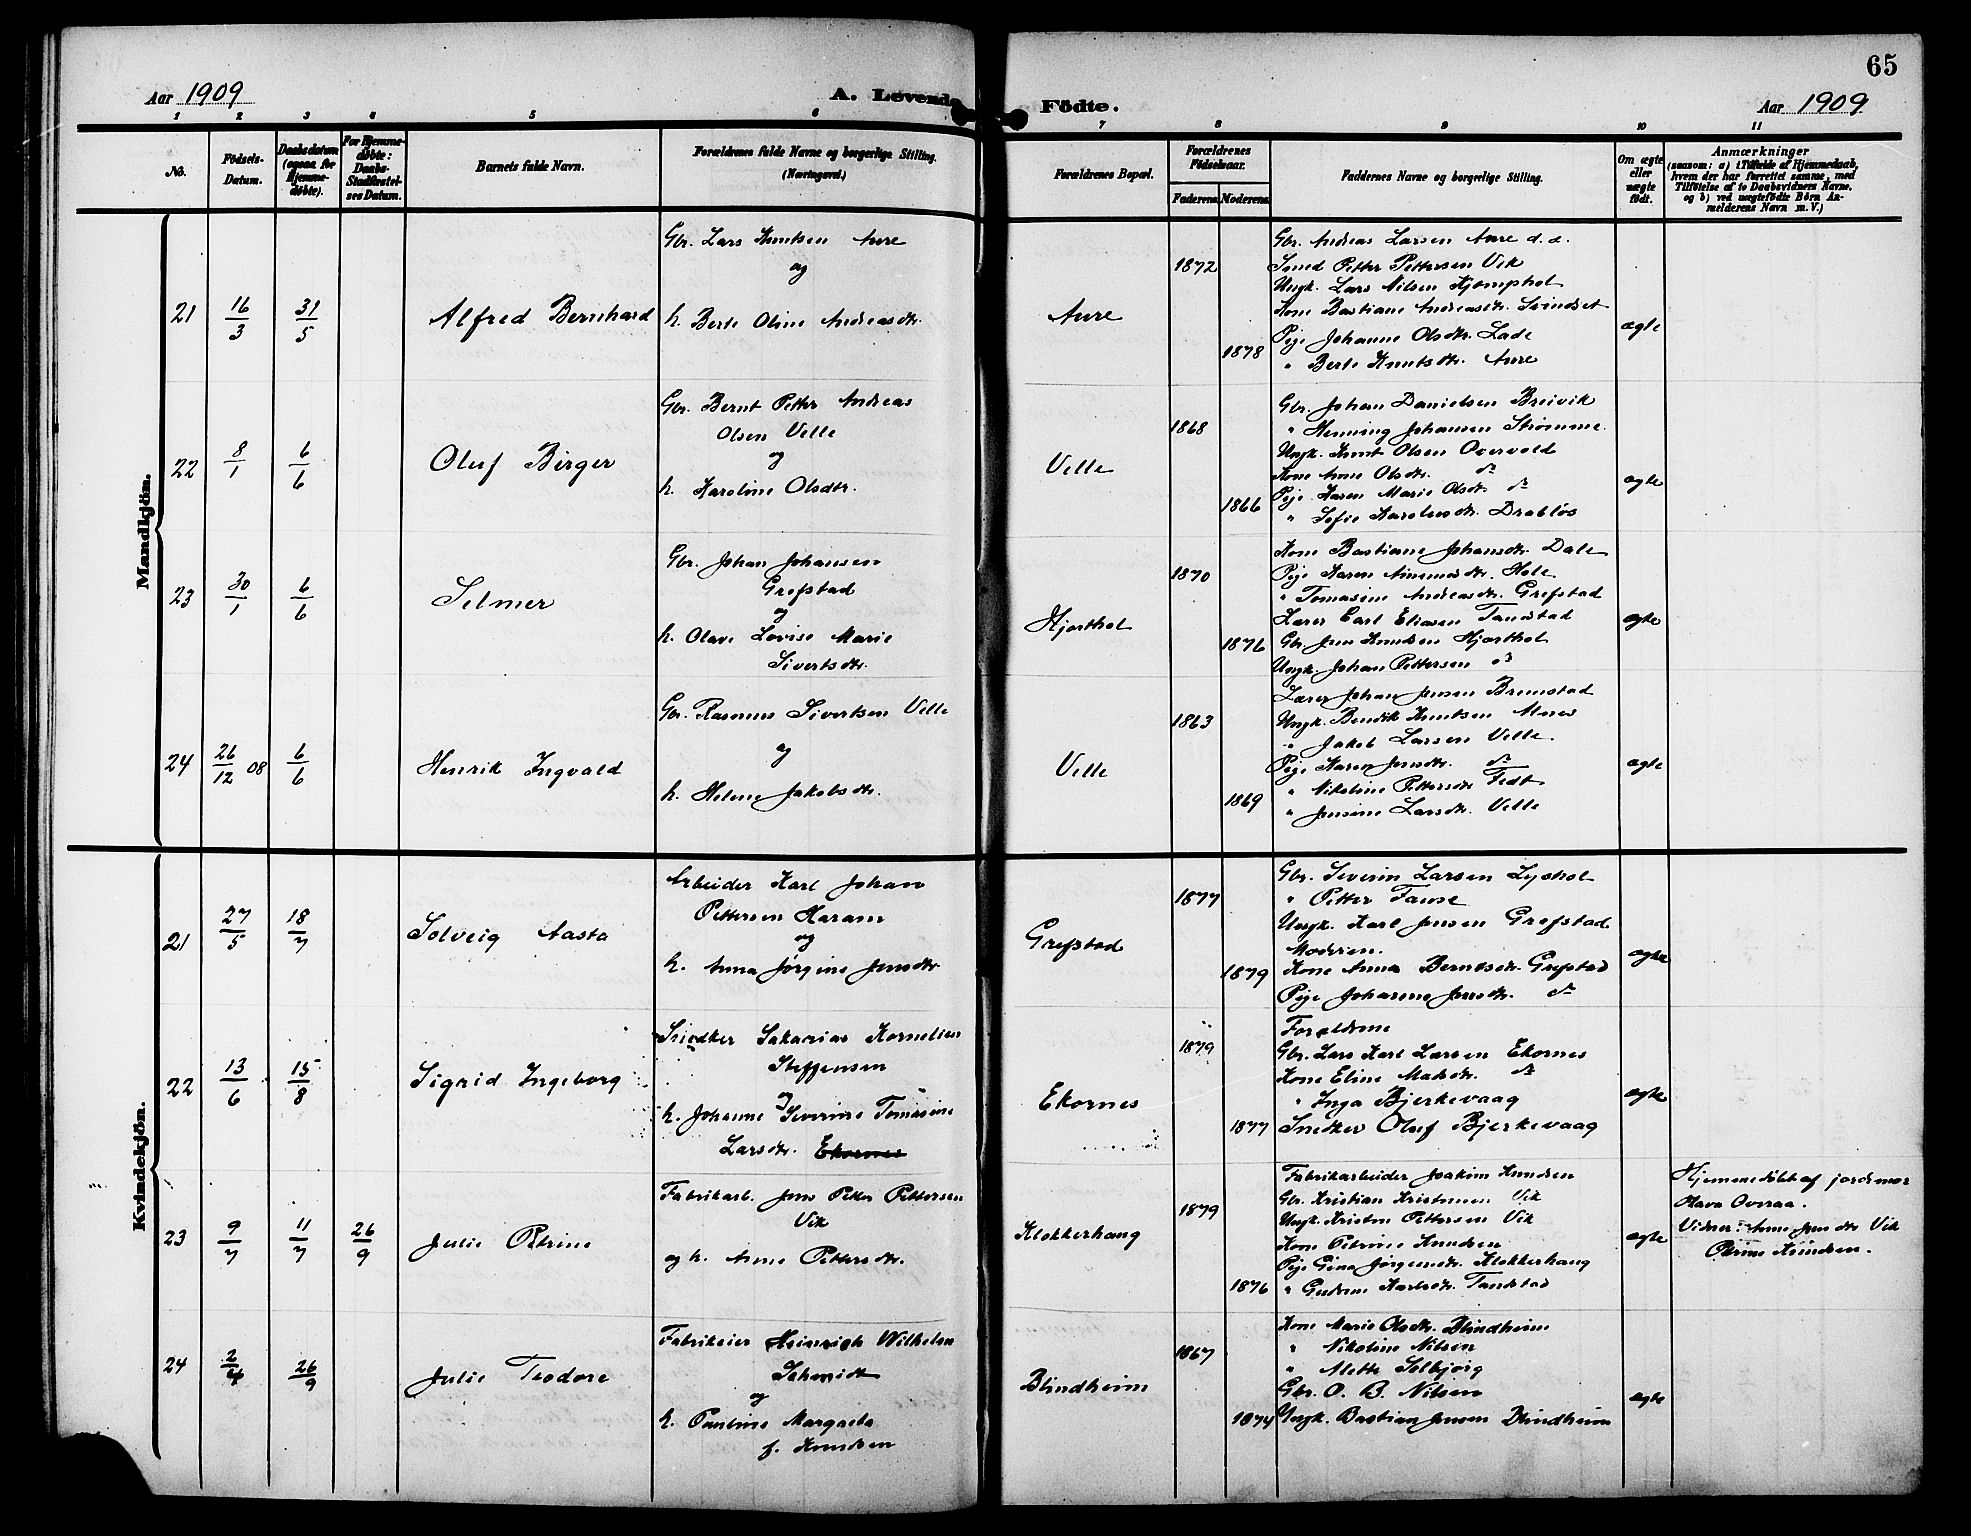 65
Aar 1909
A. Levende
Födte.
Aar 1909
1 2 3 4 5 6 7 8 9 10 11
No.
Födsels-Datum.
Daabsdatum (ogsaa for Hjemme-døbte).
For Hjemme-døbte: Daabs-Stadfæstelses Datum.
Barnets fulde Navn.
Forældrenes fulde Navne og borgerlige Stilling. (Næringsvei.)
Forældrenes Bopæl.
Forældrenes Födselsaar.
Faderens
Moderens
Faddernes Navne og borgerlige Stilling.
Om ægte eller uægte født.
Anmærkninger
(saasom: a) i Tilfælde af Hjemmedaab,
hvem der har forrettet samme, med
Tilföielse af to Daabsvidners Navne,
og b) ved uægtefödte Börn An-
melderens Navn m. V.)
Mandkjön.
21
16/3
31/5
Alfred Bernhard
Gbr. Lars Knutsen Aure
og
h. Berte Oline Andreasdtr.
Aure
1872
1878
Gbr. Andreas Larsen Aure d. e.
Smed Petter Pettersen Vik
Ungk. Lars Nilsen Kjemphol
Kone Bastiane Andreasdtr. Svindset
Pige Johanne Olsdtr. Lade
" Berte Knutsdtr. Aure
ægte
22
8/1
6/6
Oluf Birger
Gbr. Bernt Petter Andreas
Olsen Velle
og
h. Karoline Olsdtr.
Velle
1868
1866
Gbr. Johan Danielsen Breivik
" Henning Johansen Strømme.
Ungk. Knut Olsen Overvold
Kone Anne Olsdtr. do
Pige Karen Marie Olsdtr. do
" Sofie Karolusdtr. Drabløs
ægte
23
30/1
6/6
Selmer
Gbr. Johan Johansen
Grefstad
og
h. Olave Lovise Marie
Sivertsdtr.
Hjorthol
1870
1876
Kone Bastiane Johansdtr. Dale
Pige Karen Hole
" Tomasine Andreasdtr. Grefstad
Lærer Carl Eliasen Tandstad
Gbr. Jens Knudsen Hjorthol
Ungk. Johan Pettersen do
ægte
24
26/12 08
6/6
Henrik Ingvald
Gbr. Rasmus Sivertsen Velle
og
h. Helene Jakobsdtr.
Velle
1863
1869
Lærer Johan Jensen Brunstad
Ungk. Bendik Knutsen Alnes
" Jakob Larsen Velle.
Pige Karen Jensdtr. do
" Nikoline Pettersdtr Fedt
" Jensine Larsdtr. Velle
ægte
Kvindekjön.
21
27/5
18/7
Solveig Aasta
Arbeider Karl Johan
Pettersen Haram
og
h. Anna Jørgine Jensdtr
Grefstad
1877
1879
Gbr. Severin Larsen Lyshol
" Petter Tause
Ungk. Karl Jensen Grefstad
Moderen.
Kone Anna Berntsdtr. Grefstad
Pige Johanne Jensdtr. do
ægte
22
13/6
15/8
Sigrid Ingeborg
Snedker Sakarias Kornelius
Steffensen
og
h. Johanne Severine Tomasine
Larsdtr. Ekornes
Ekornes
1879
1877
Forældrene
Gbr. Lars Karl Larsen Ekornes
Kone Eline Maksdtr. do
" Inga Bjerkevaag
Snedker Oluf Bjerkevaag
ægte
23
9/7
11/7
26/9
Julie Petrine
Fabrikarb. Jens Petter Pettersen
Vik
og h. Anne Pettersdtr.
Klokkerhaug
1879
1876
Fabrikarbeider Joakim Knudsen
Gbr. Kristian Kristensen Vik
Ungk. Kristen Pettersen Vik
Kone Petrine Knudsen
Pige Gina Jørgensdtr. Klokkerhaug
" Gudrun Karlsdtr. Tandstad
ægte
Hjemmedøbt af jordemor
Olava Overaa.
Vidner: Anne Jensdtr Vik
Petrine Knudsen.
24
2/4
26/9
Julie Teodore
Fabrikeier Heinrich Wilhelm
Schmidt
og
h. Pauline Margrete
f. Knudsen
Blindheim
1867
1874
Kone Marie Olsdtr. Blindheim
" Nikoline Nilsen
" Alette Solbjørg
Gbr. O. B. Nilsen
Ungk. Bastian Jensen Blindheim
ægte